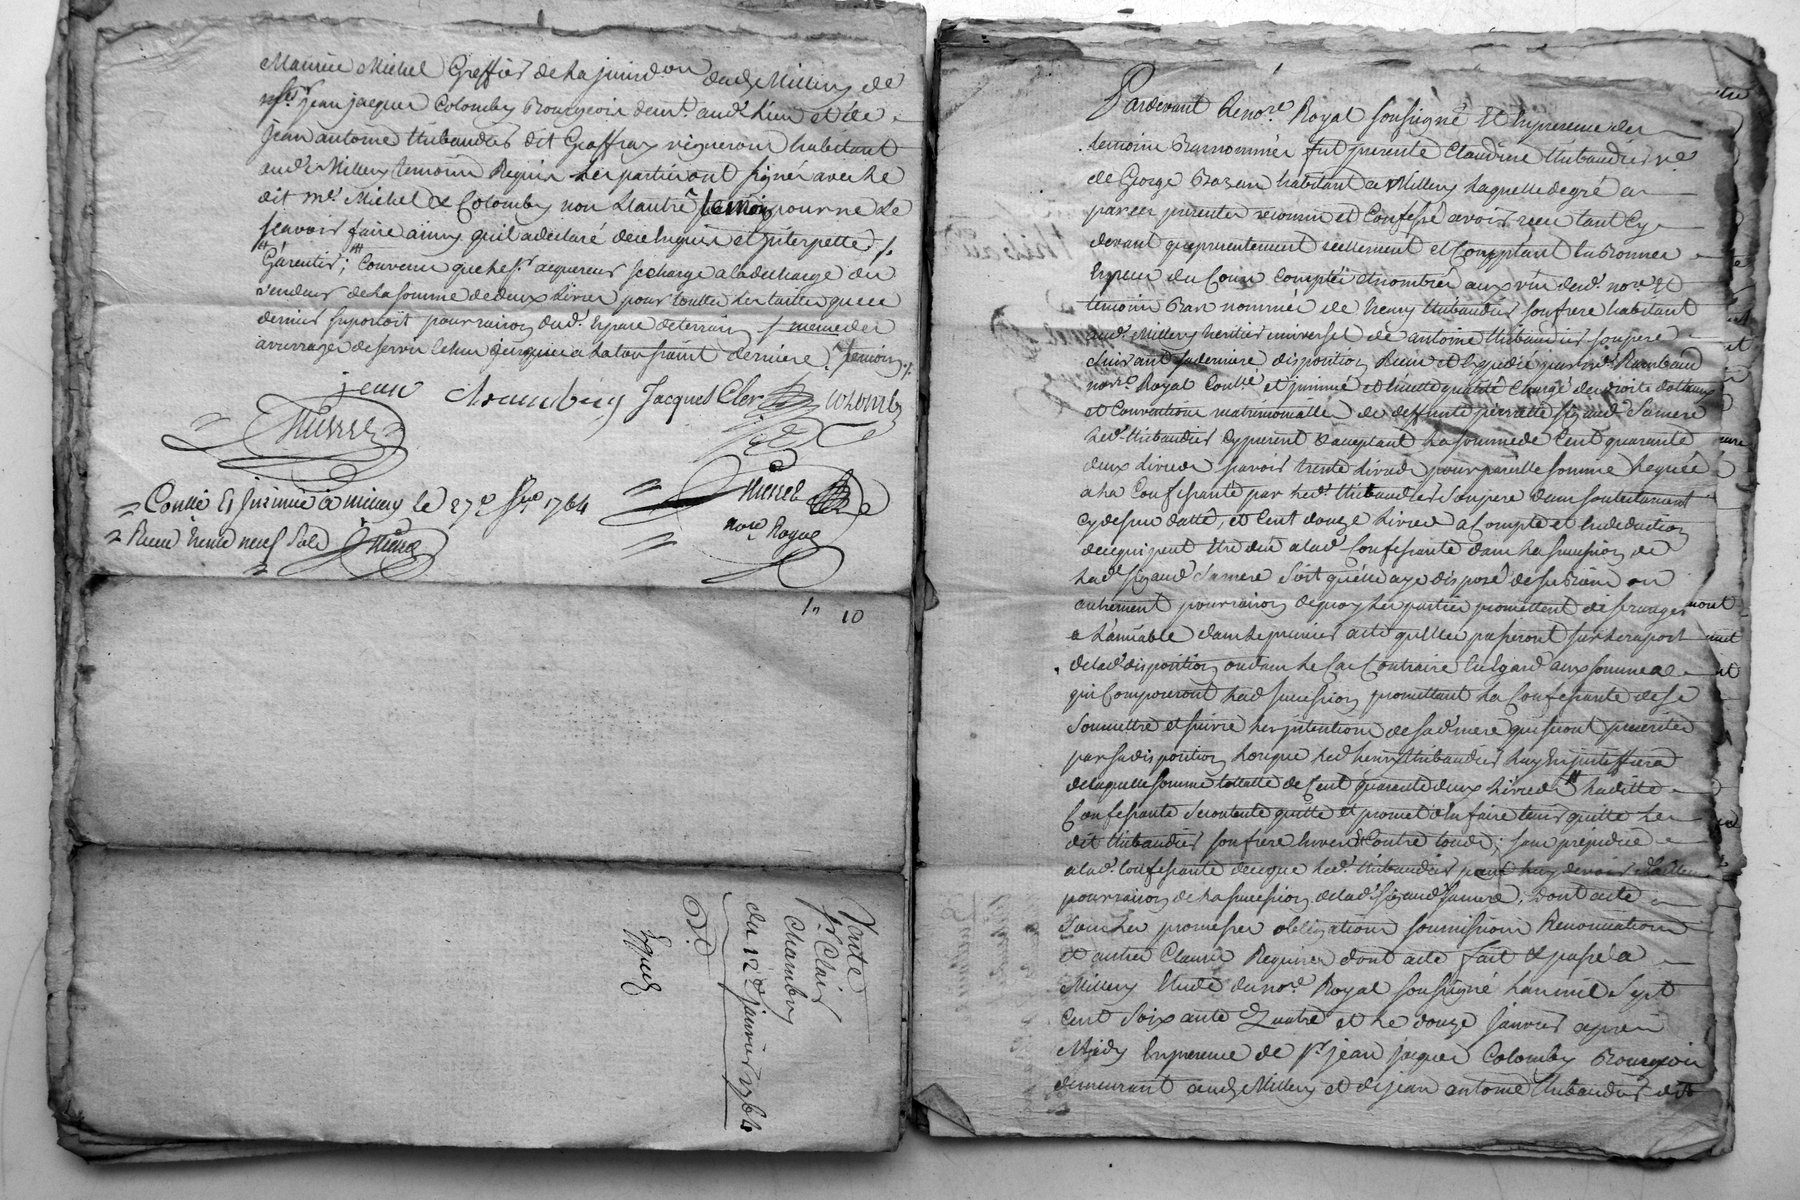 Maurice Michel Greffier de la jurid.on dud. Millery de
jean jacques Colomby Bourgeois dem.t aud.t Lieu et de
jean antoine thibaudier dit Goffray vigneron habitant
aud.t Millery temoins Requis les parties ont signé avec le
dit m.e Michel & Colomby non L'autre temoin pour ne le
scavoir faire ainsy qu'il a declaré de ce enquis et interpellé
Garentir; convenu que le s.r acquereur se charge a la decharge du
vendeur de la somme de deux Livres pour toutte les tailles que ce
dernier suportoit pour raison dud. Espace de terrain, & meme des
arrerages de servis échus jusques a la toussaint derniere temoin
jean Chambry Jacques Cler Colomby
Michel
Conllé Et Insinué a millery le 27e 1764
Reçu trente neuf Sols Michel
Michel
nore Royal
1n 10
Vente
Sr Clair
Chambry
du 12e janvier 1764
Expedié
Pardevant Le no.re Royal soussigné Et En presence des
temoins Bas nommés fut presente Claudine thibaudier v.e
de George Bazan habitant a Millery Laquelle de gré a
par ces presentes reconnu et Confessé avoir reçu tant Cy
devant que presentement reellement et Comptant En Bonnes
Especes du Cours Comptées et nombrées aux vües dud. no.re Et
temoins Bas nommés de henry thibaudier son frere habitant
aud. Millery heritier universel de antoine thibaudier son pere
suivant sa derniere disposition Reçue et Expediée par m.e Rambaud
no.re Royal Conllé et insinué et En cette qualité Chargé des droits dotaux
et Conventions matrimonialles de deffunte pierrette Rigaud sa mere
Led. thibaudier Cy present & acceptant La somme de Cent quarante
deux Livres scavoir trente Livres pour pareille somme Leguée
a La Confessante par Led. thibaudier son pere dans son testament
Cy dessus datté, et Cent douze Livres a Compte et En deduction
de ce qui peut Etre dû a lad. Confessante dans La succession de
Lad. Rigaud sa mere soit qu'elle aye disposé de ses Biens ou
autrement pour raison de quoy Les parties promettent de s'arranger
a L'amiable dans Le premier acte qu'Elles passeront sur Le raport
de lad. disposition, ou dans Le Cas Contraire En Egard aux sommes
qui Composeront Lad. succession promettant La Confessante de se
soumettre et suivre Les intentions de sad. mere qui seront presentées
par sa disposition Lorsque Led. henry thibaudier Luy En justiffiera
de laquelle somme totalle de Cent quarante deux Livres Laditte
Confessante se contente quitte et promet d'En faire tenir quitte Le
dit thibaudier son frere Envers Et Contre tous; sans prejudice
a lad. Confessante de ce que Led. thibaudier peut Luy devoir d'ailleurs
pour raison de La succession de lad. Rigaud sa mere. Dont acte
sous Les promesses obligations soumissions Renonciations
et autres Clauses Requises dont acte fait & passé a
Millery Etude du no.re Royal soussigné L'an mil sept
Cent Soixante Quatre et le douze janvier apres
Midy En presence de s.r jean jacques Colomby Bourgeois
demeurant aud. Millery et de jean antoine thibaudier dit